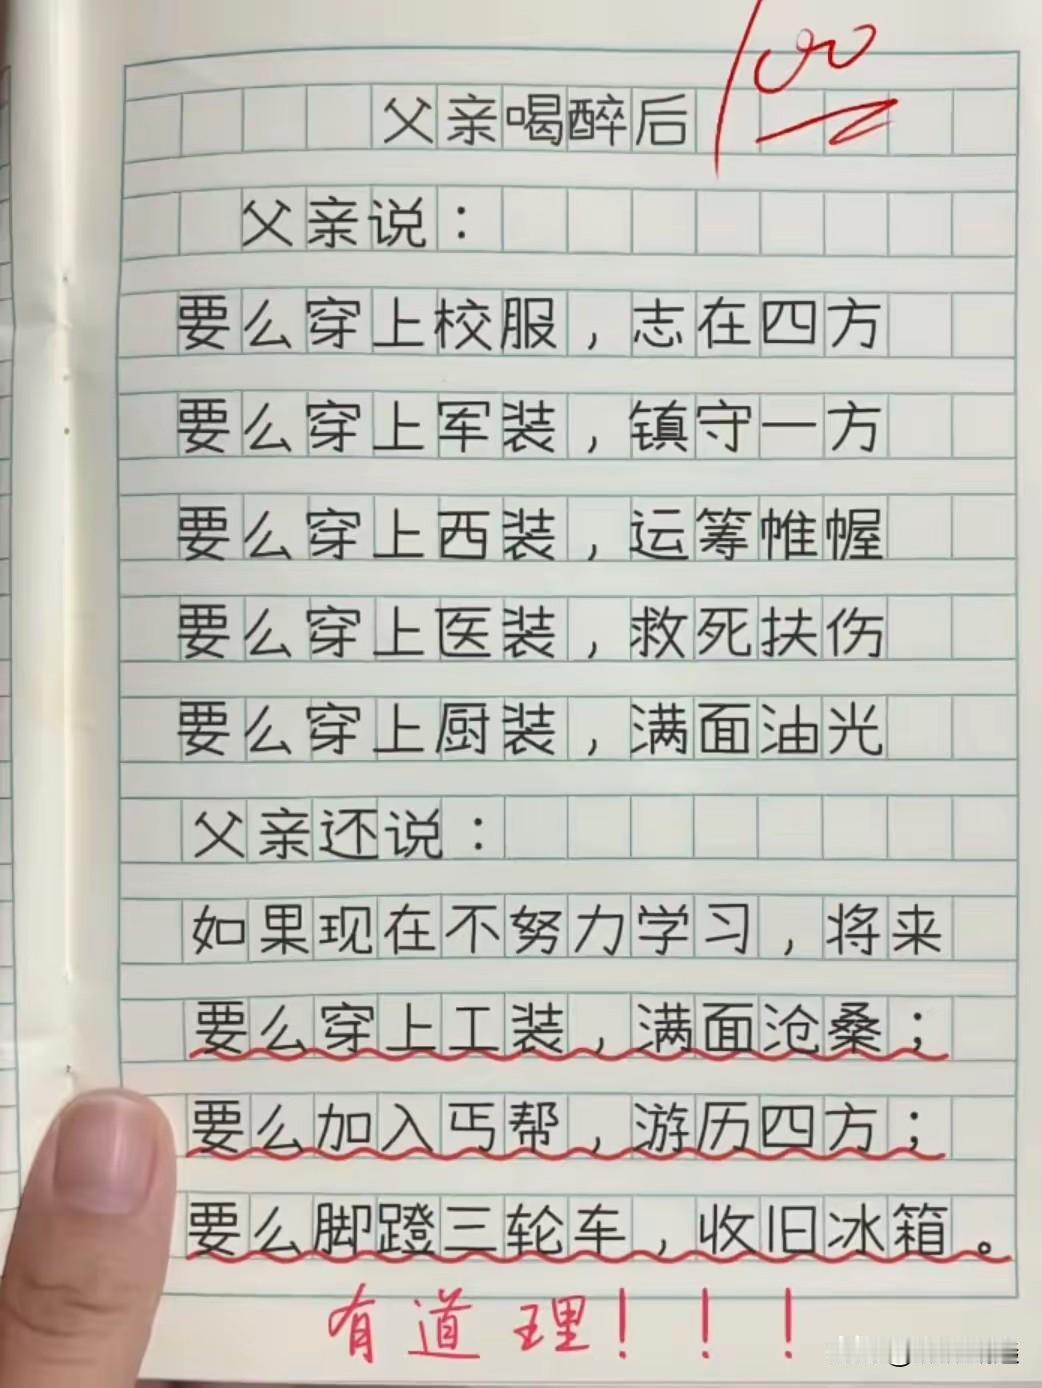 100
父亲喝醉后
父亲说：
要么穿上校服，志在四方
要么穿上军装，镇守一方
要么穿上西装，运筹帷幄
要么穿上医装，救死扶伤
要么穿上厨装，满面油光
父亲还说：
如果现在不努力学习，将来
要么穿上工装，满面沧桑；
要么加入丐帮，游历四方；
要么脚蹬三轮车，收旧冰箱。
有道理！！！